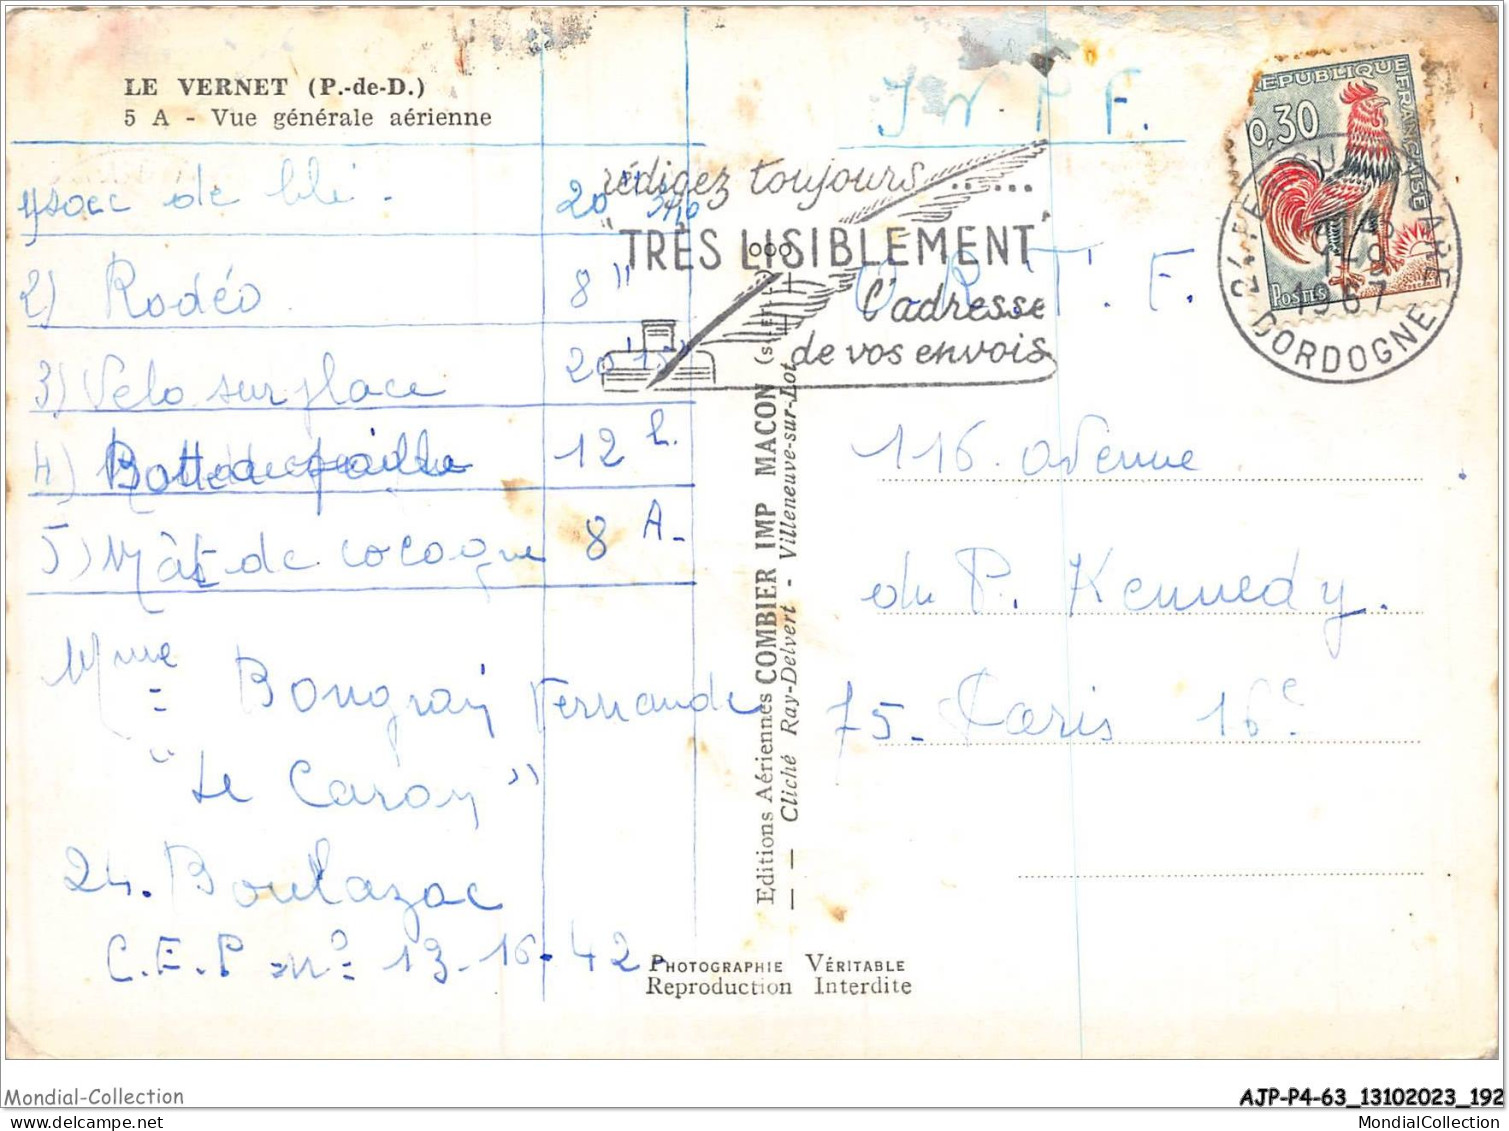 LE VERNET (P.-de-D.)
5 A - Vue générale aérienne
de blé. 20"
2) Rodéo 8"
3) Vélo sur place 20"
4) Botte de paille 12 h.
5) Mât de cocagne 8 A-
Mme Bongrain Fernande
"Le Caroy"
24. Boulazac
C.E.P n° 13-16-42-
Editions Aériennes COMBIER IMP MACON (S.-et-L.)
Cliché Ray-Delvert - Villeneuve-sur-Lot
PHOTOGRAPHIE VÉRITABLE
Reproduction Interdite
rédigez toujours ......
"TRÈS LISIBLEMENT"
l'adresse
de vos envois
RÉPUBLIQUE FRANÇAISE
0,30
POSTES
1967
DORDOGNE
O.R.T.F.
116. avenue
du P. Kennedy.
75- Paris 16e
Mondial-Collection
AJP-P4-63_13102023_192
MondialCollection